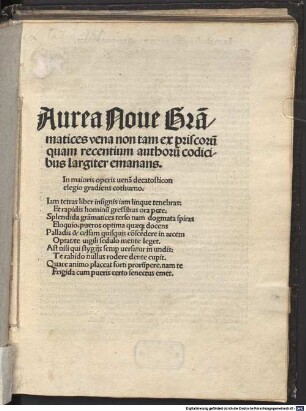 Aurea Noue Grā-
matices vena non tam ex priscorū
quam recentium authorū codici-
bus largiter emanans.
In maioris operis venā decatostichon
elegio gradiens cothurno.
Iam tetras liber insignis iam linque tenebras:
Et rapidis hominū gressibus ora pete:
Splendida grāmatices terso nam dogmata spiras
Eloquio, pueros optima quæq; docens
Palladis & celsam quisquis cōscēdere in arcem
Optat te vigili sedulo mente leget.
Ast nisi qui stygijs semp̱ versatur in vndis:
Te rabido nullus rodere dente cupit.
Quare animo placeat forti prorūpere, nam te
Frigida cum pueris certo senectus emet.